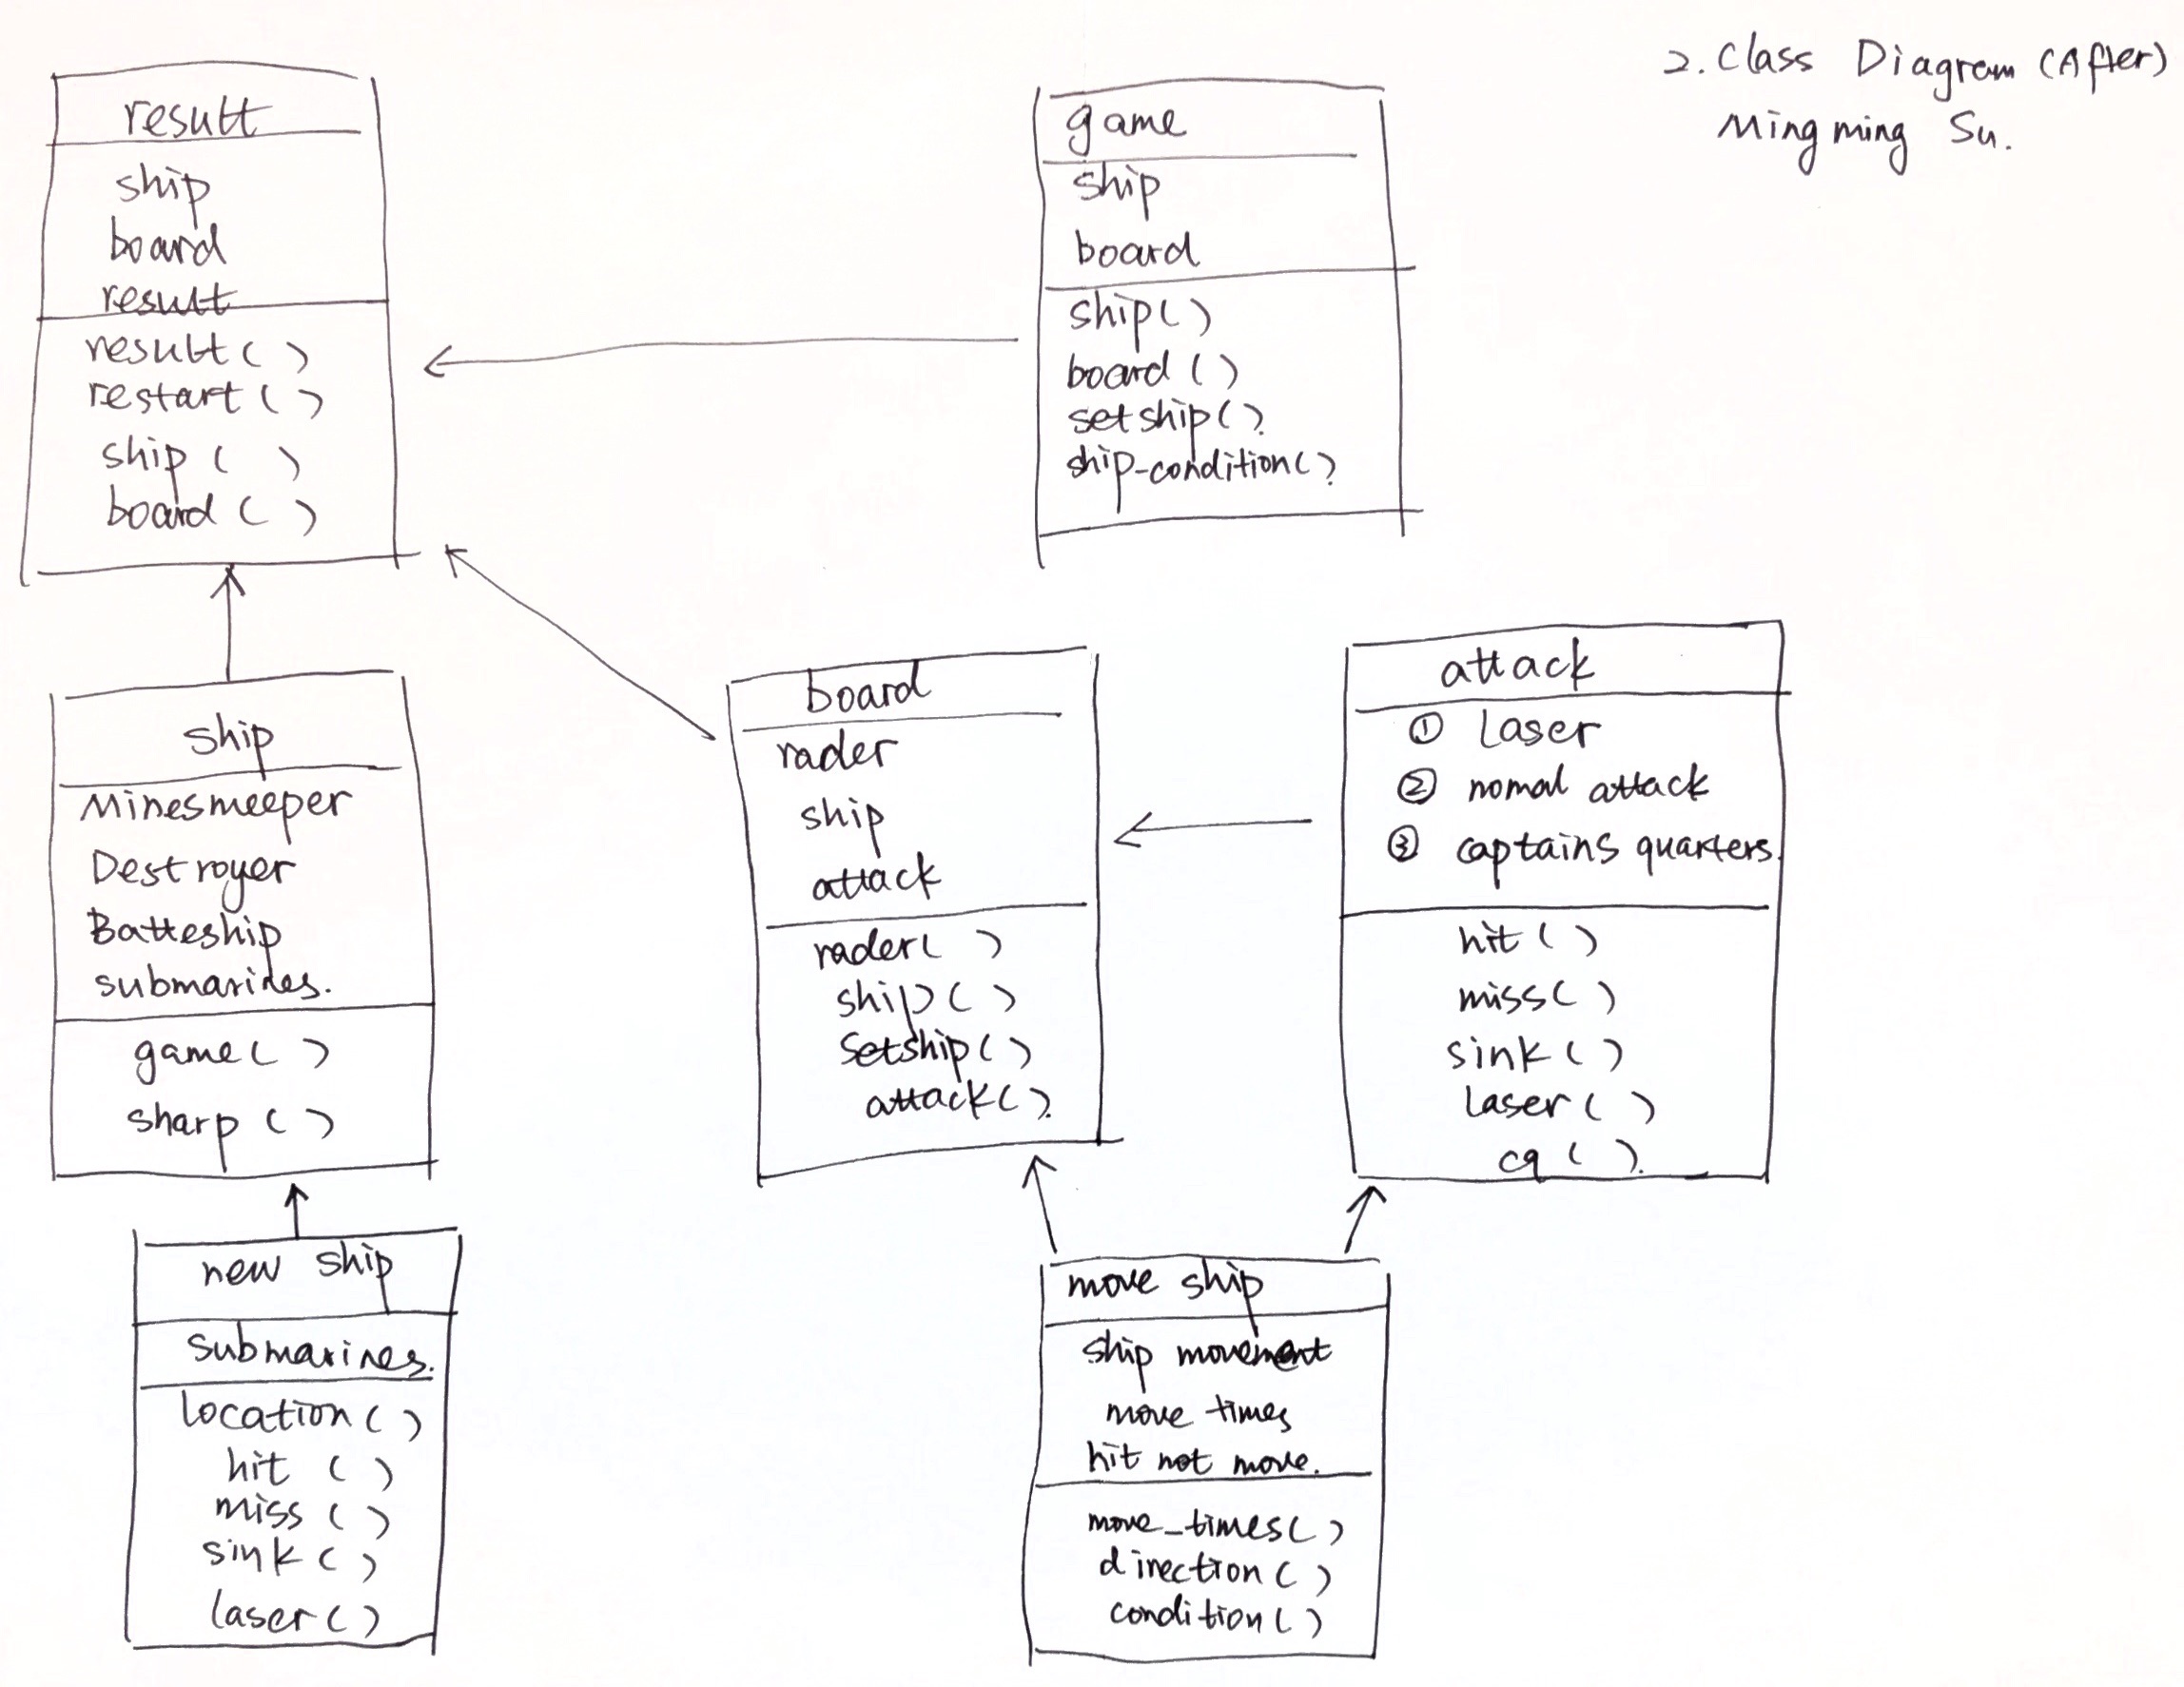 2. Class Diagram (After)
Mingming Su.
result
ship
board
result
result()
restart()
ship ( )
board ( )
game
ship
board
ship()
board ()
setship()
ship-condition()
ship
Minesmeeper
Destroyer
Batteship
submarines.
game()
sharp ()
board
rader
ship
attack
rader( )
ship()
setship()
attack()
attack
① Laser
② nomal attack
③ captains quarters.
hit ()
miss()
sink()
Laser()
cq ().
new ship
submarines.
location()
hit ()
miss ()
sink()
laser()
move ship
ship movement
move times
hit not move.
move_times()
direction()
condition()